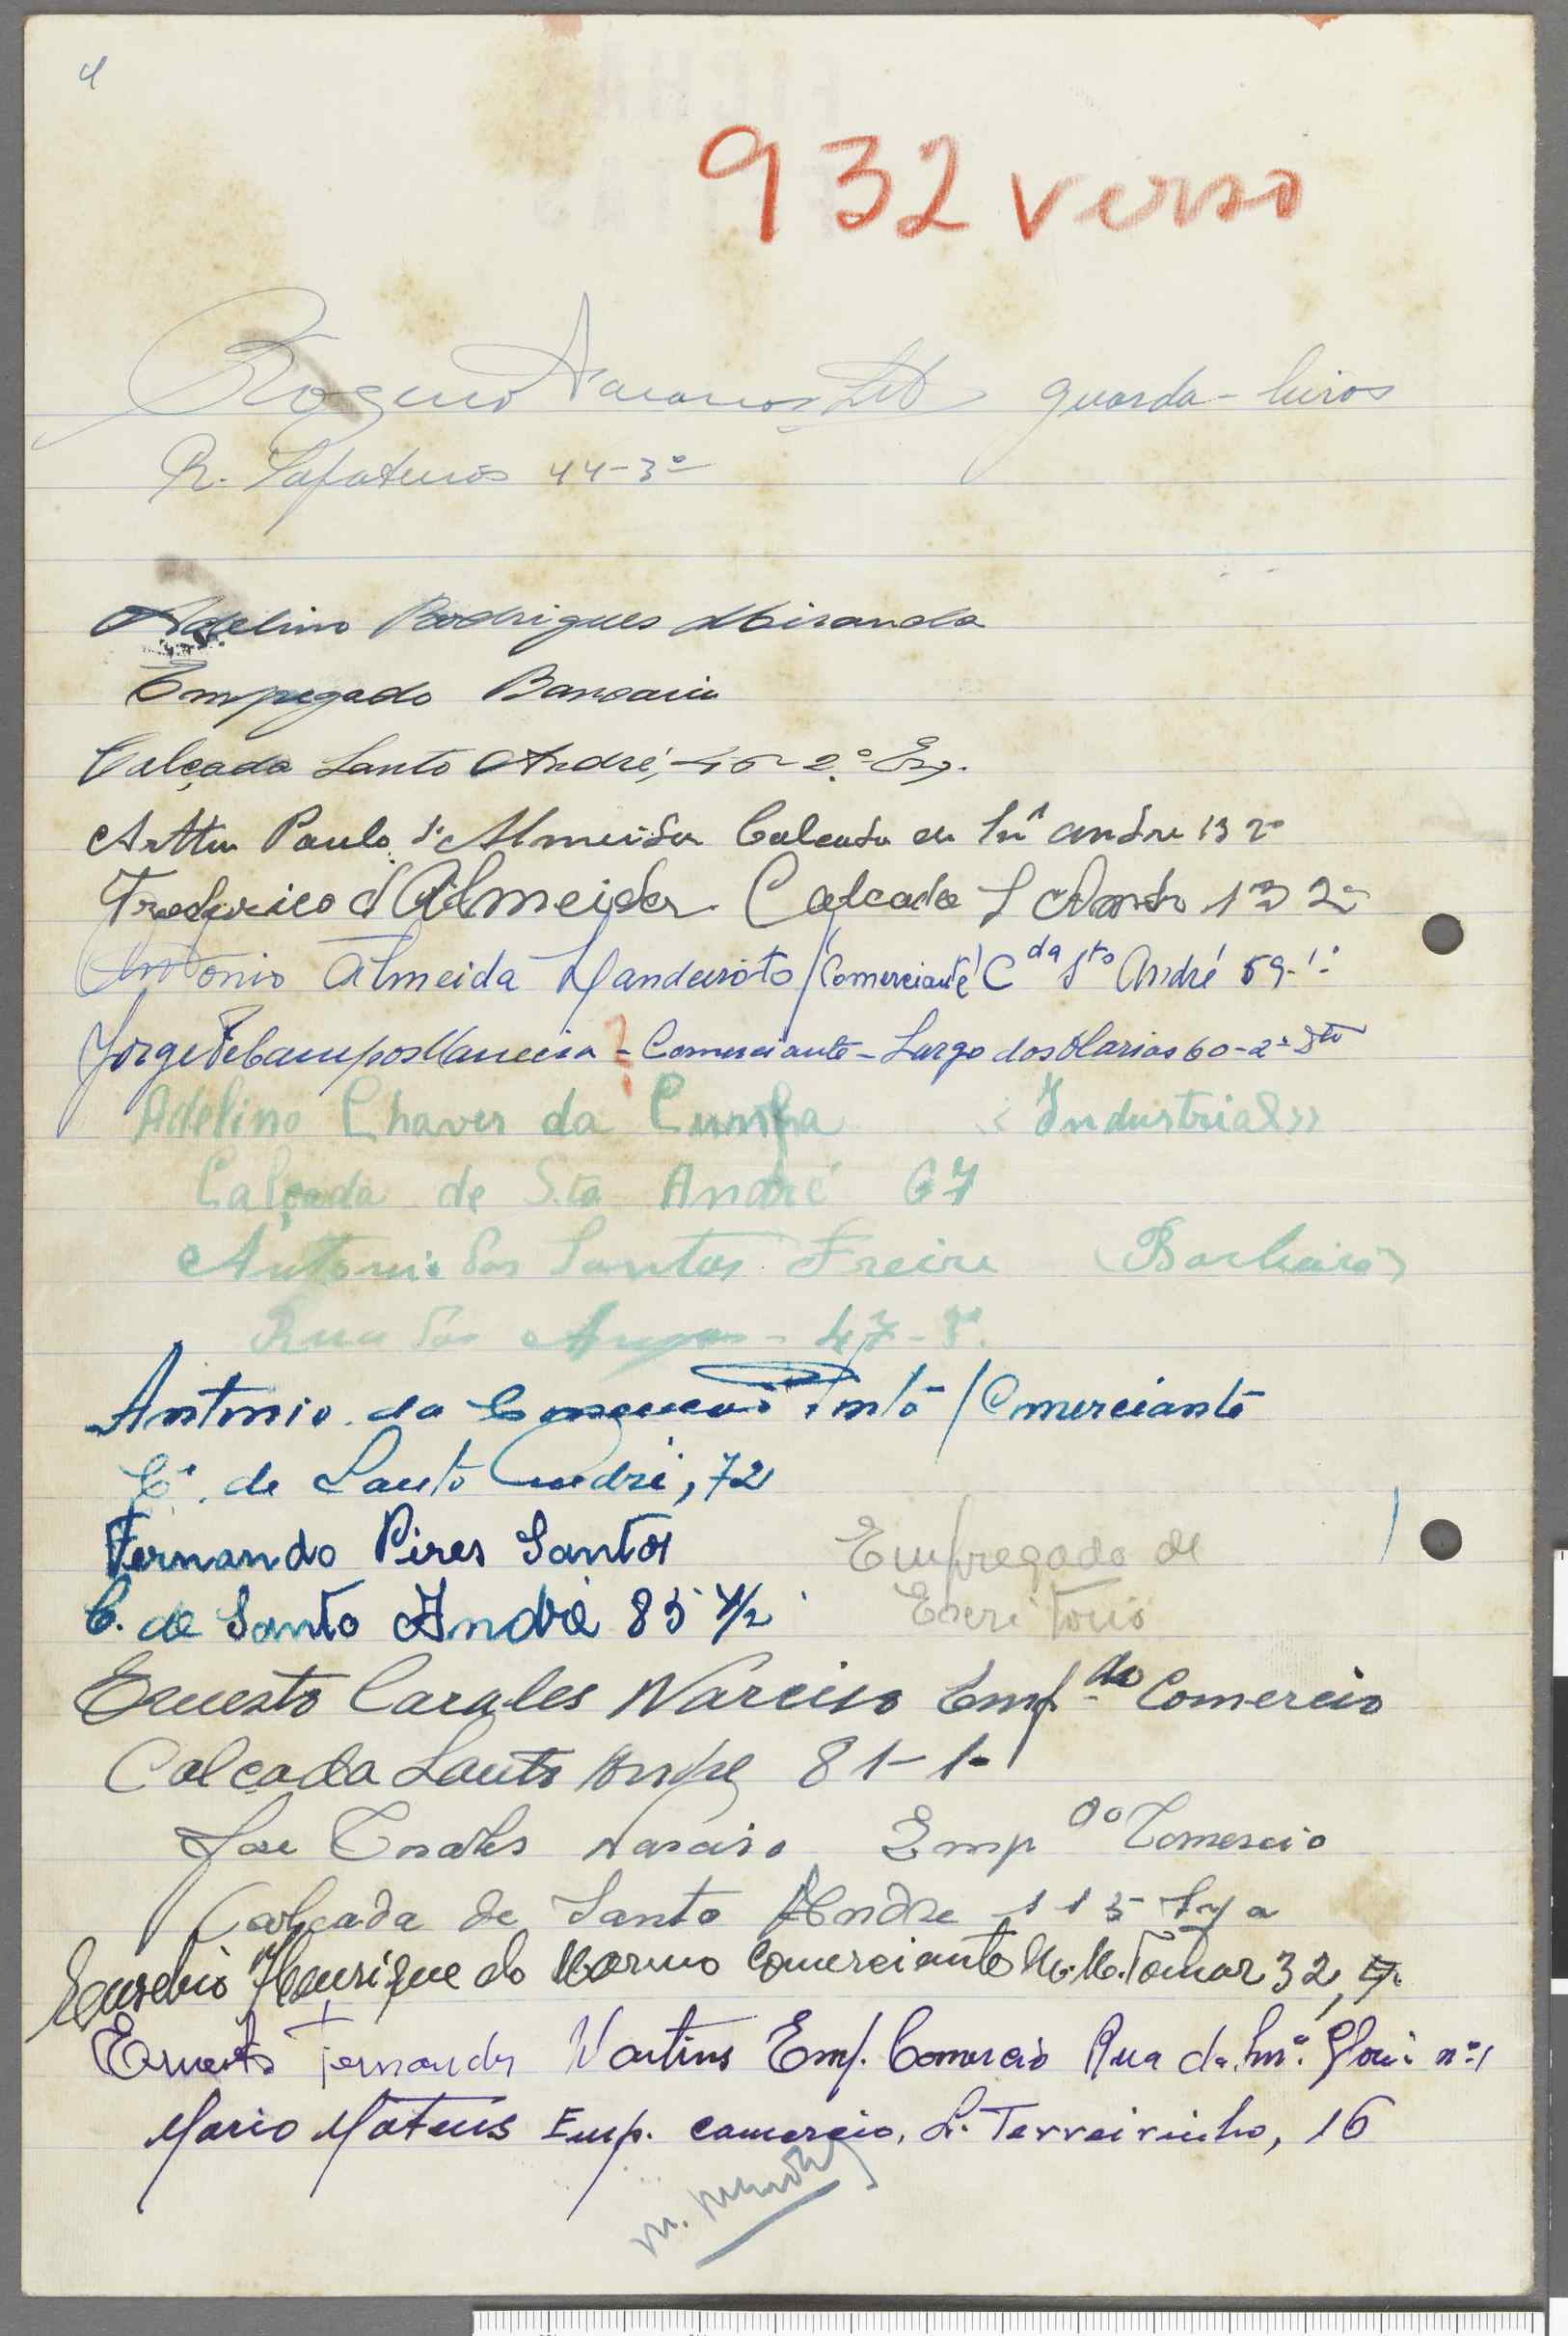 4
932 verso
guarda-livros
R. Sapateiros 44-3º
Adelino Rodrigues Miranda
Empregado Bancario
Calçada Santo André, 46-2.º Esq.
Arthur Paulo d'Almeida Calçada de André 13 2º
Frederico d'Almeida Calçada S André 13 2º
Antonio Almeida Mandeiroto (Comerciante) Cda Sto André 59-1º
Jorge de Campos - Comerciante - Largo das Olarias 60-2º Dto
?
Adelino Chaves da Cunha «Industrial»
Calçada de Sto André 67
Antonio dos Santos Freire (Barbeiro)
Rua dos 47-3º.
Antonio da Pinto / Comerciante
Cª. de Santo André, 72
Fernando Pires Santos Empregado de
C. de Santo André 85 1/2 Escritorio
Ernesto Carales Narciso Emp. do Comercio
Calçada Santo André 81-1º
Jose Narciso Emp do Comercio
Calçada de Santo Andre 115
Eusebio Henrique do Carmo Comerciante Tomar 32,
Ernesto Fernandes Martins Emp. Comercio Rua da nº 1
Mario Mateus Emp. comercio, L. Terreirinho, 16